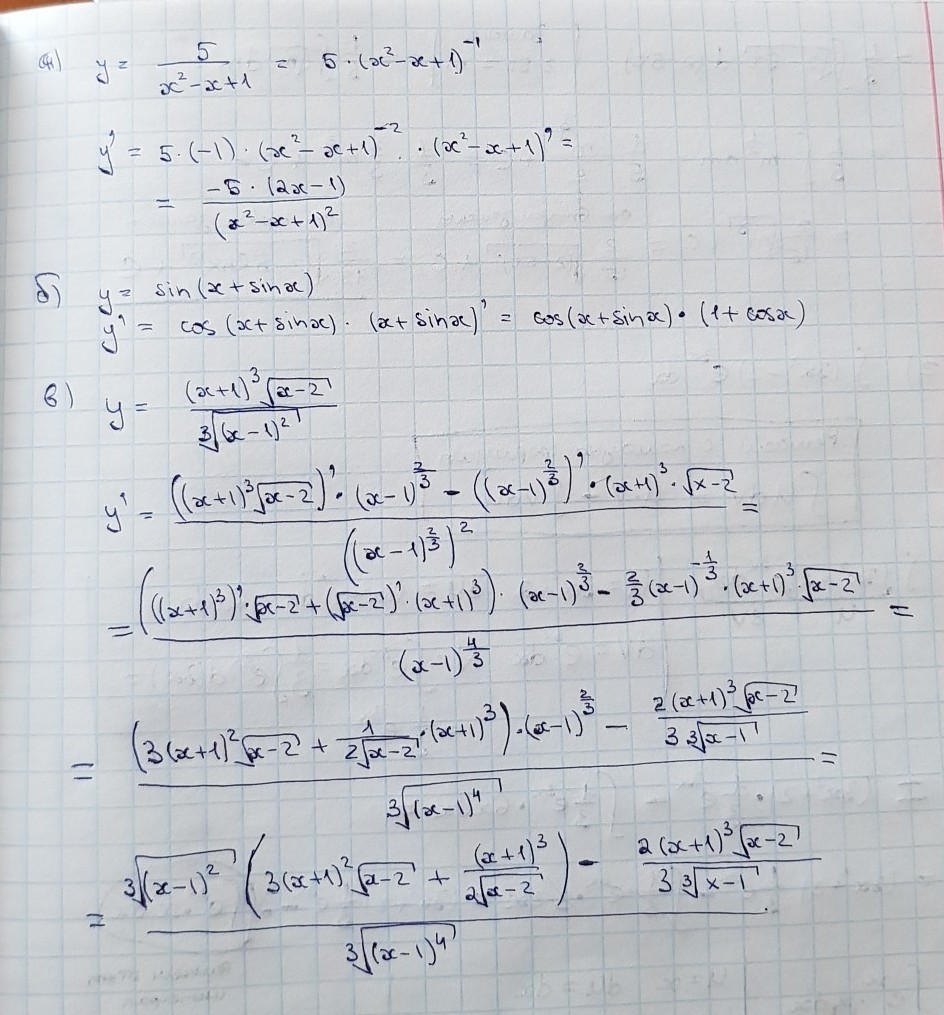 а) y = 5/(x²−x+1) = 5·(x²−x+1)⁻¹
y' = 5·(−1)·(x²−x+1)⁻²·(x²−x+1)' =
= −5·(2x−1)/(x²−x+1)²
б) y = sin(x+sinx)
y' = cos(x+sinx)·(x+sinx)' = cos(x+sinx)·(1+cosx)
в) y = (x+1)³√(x−2)/∛((x−1)²)
y' = (((x+1)³√(x−2))'·(x−1)^(2/3) − ((x−1)^(2/3))'·(x+1)³·√(x−2))/((x−1)^(2/3))² =
= ((((x+1)³)'·√(x−2) + (√(x−2))'·(x+1)³)·(x−1)^(2/3) − 2/3(x−1)^(−1/3)·(x+1)³·√(x−2))/(x−1)^(4/3) =
= ((3(x+1)²√(x−2) + 1/(2√(x−2))·(x+1)³)·(x−1)^(2/3) − 2(x+1)³√(x−2)/(3∛(x−1)))/∛((x−1)⁴) =
= (∛((x−1)²)(3(x+1)²√(x−2) + (x+1)³/(2√(x−2))) − 2(x+1)³√(x−2)/(3∛(x−1)))/∛((x−1)⁴)